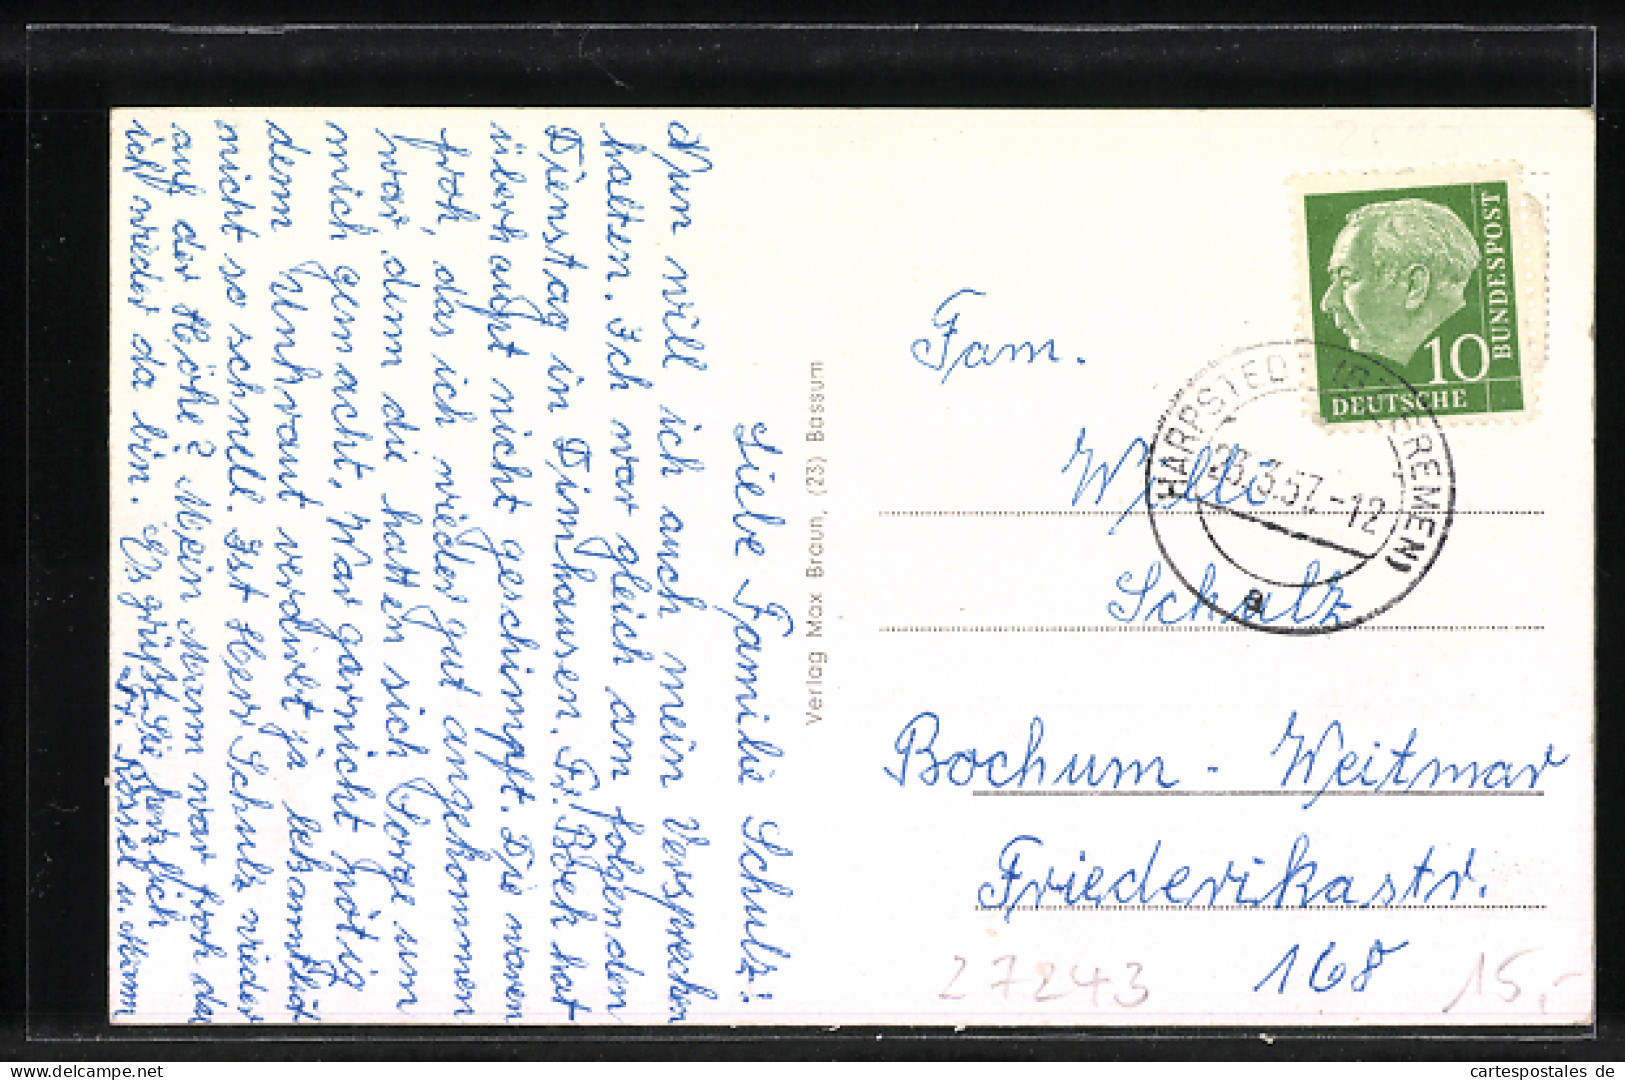 Liebe Familie Schulz!
Nun will ich auch mein Versprechen
halten. Ich war gleich am folgenden
Dienstag in Dimhausen. Fr. Böck hat
überhaupt nicht geschimpft. Die waren
froh, das ich wieder gut angekommen
war, denn die hatten sich Sorge um
mich gemacht, war garnicht nötig
denn Unkraut verdirbt ja bekanntlich
nicht so schnell. Ist Herr Schulz wieder
auf der Höhe? Mein Mann war froh das
ich wieder da bin. Es grüßt Sie herzlich
Fr. Rössel u. Mann
Verlag Max Braun, (23) Bassum
DEUTSCHE
BUNDESPOST
10
HARPSTEDT BREMEN)
23.3.57.-12
a
Fam.
Willi
Schulz
Bochum - Weitmar
Friederikastr.
168
27243
15,-
cartespostales de